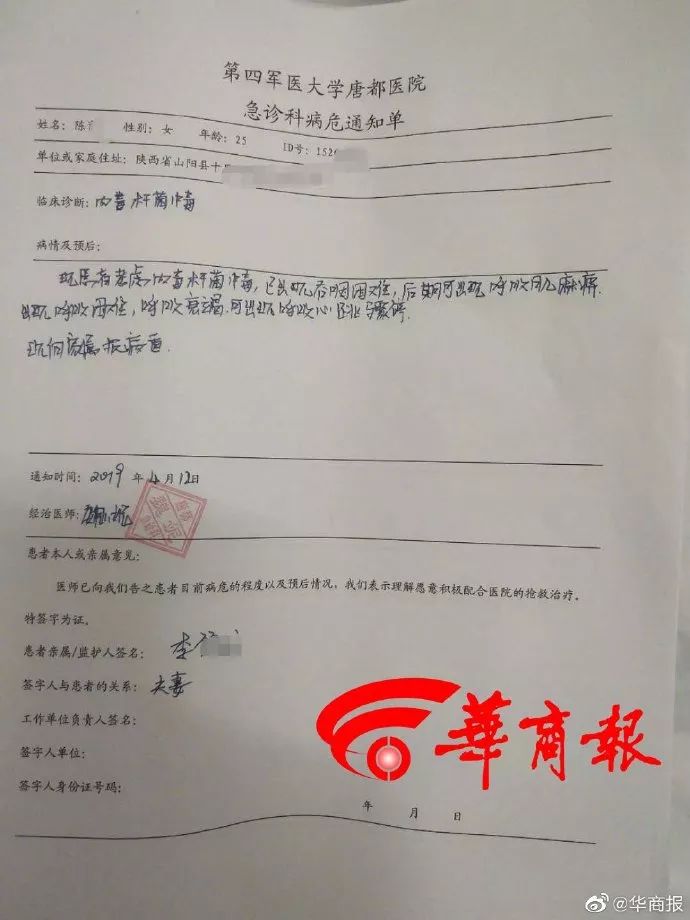 第四军医大学唐都医院
急诊科病危通知单
姓名：陈 性别：女 年龄：25 ID号：152
单位或家庭住址：陕西省山阳县十
临床诊断：肉毒杆菌中毒
病情及预后：
现患者考虑肉毒杆菌中毒，已出现吞咽困难，后期可出现呼吸肌麻痹.
出现呼吸困难，呼吸衰竭.可出现呼吸心跳骤停.
现向家属报病重.
通知时间：2019 年 4 月 12日
经治医师：
患者本人或亲属意见：
医师已向我们告之患者目前病危的程度以及预后情况，我们表示理解愿意积极配合医院的抢救治疗。
特签字为证。
患者亲属/监护人签名：李
签字人与患者的关系：夫妻
工作单位负责人签名：
签字人单位：
签字人身份证号码：
年 月 日
華商報
@华商报